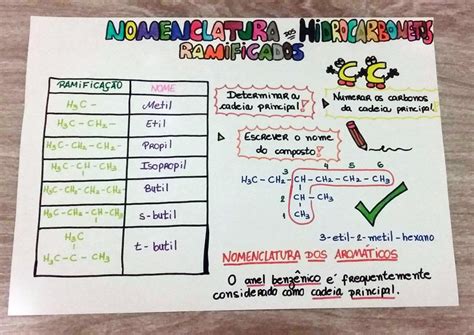 NOMENCLATURA DOS HIDROCARBONETOS
RAMIFICADOS
RAMIFICAÇÃO NOME
H₃C – Metil
H₃C – CH₂ – Etil
H₃C – CH₂ – CH₂ – Propil
H₃C – CH – CH₃ Isopropil
H₃C – CH₂ – CH₂ – CH₂ – Butil
H₃C – CH₂ – CH – CH₃ s-butil
H₃C
H₃C – C – CH₃ t-butil
Determinar a
cadeia principal!
C C
Numerar os carbonos
da cadeia principal!
Escrever o nome
do composto!
3 4 5 6
H₃C – CH₂ – CH – CH₂ – CH₂ – CH₃
2 CH – CH₃
1 CH₃
3-etil-2-metil-hexano
NOMENCLATURA DOS AROMÁTICOS
O anel benzênico é frequentemente
considerado como cadeia principal.